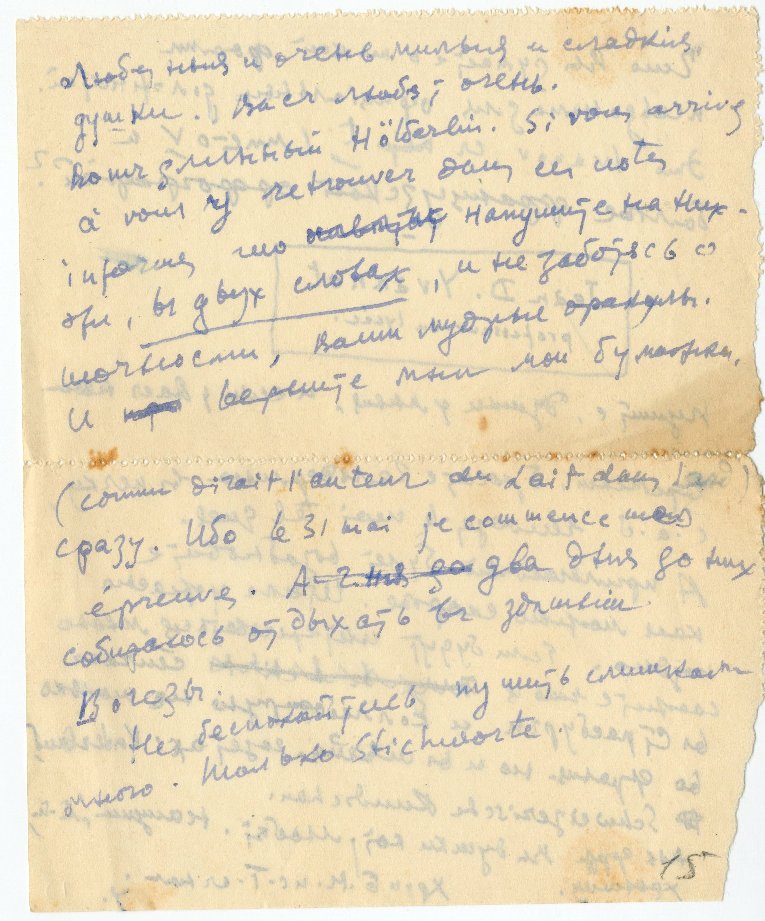 Любезныя и очень милыя и сладкія
душки. Васъ любят очень.
вашъ длинный Hölderlin. Si vous arrive
à vous y retrouver dans ces notes
informes, что напишите на них
эти, въ двух словах, и не заботясь о
точности, ваши мудрые оракулы.
И верните мнѣ мои бумажки,
(comme dirait l'auteur du Lait dans l'
сразу. Ибо le 31 mai je commence mes
épreuves. А два дня до них
собираюсь отдыхать въ здѣшнім
Вогезы.
Не беспокойтесь пушить слишком
много. Только Stichworte.
15